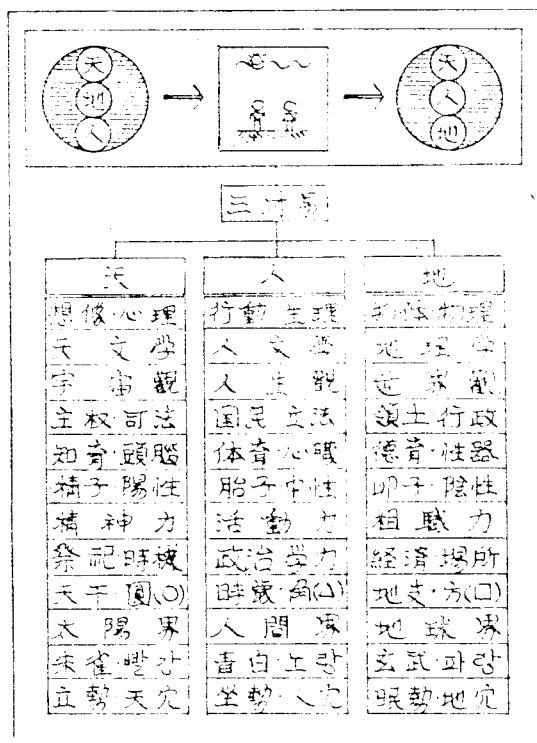 天 天
地 人
人 地
三
天 人 地
想像·心理 行動·生理 体·物理
天文學 人文學 地理学
宇宙觀 人生觀 世界觀
主权司法 国民立法 領土行政
知育·頭腦 体育·心職 德育·性器
精子·陽性 胎子·中性 卵子·陰性
精神力 活動力 組職力
祭祀時機 政治學力 経済場所
天干·圓(○) 時歲·角(△) 地支·方(□)
太陽界 人間界 地球界
朱雀·빨강 青白·노랑 玄武·파랑
立勢·天穴 坐勢·人穴 眠勢·地穴